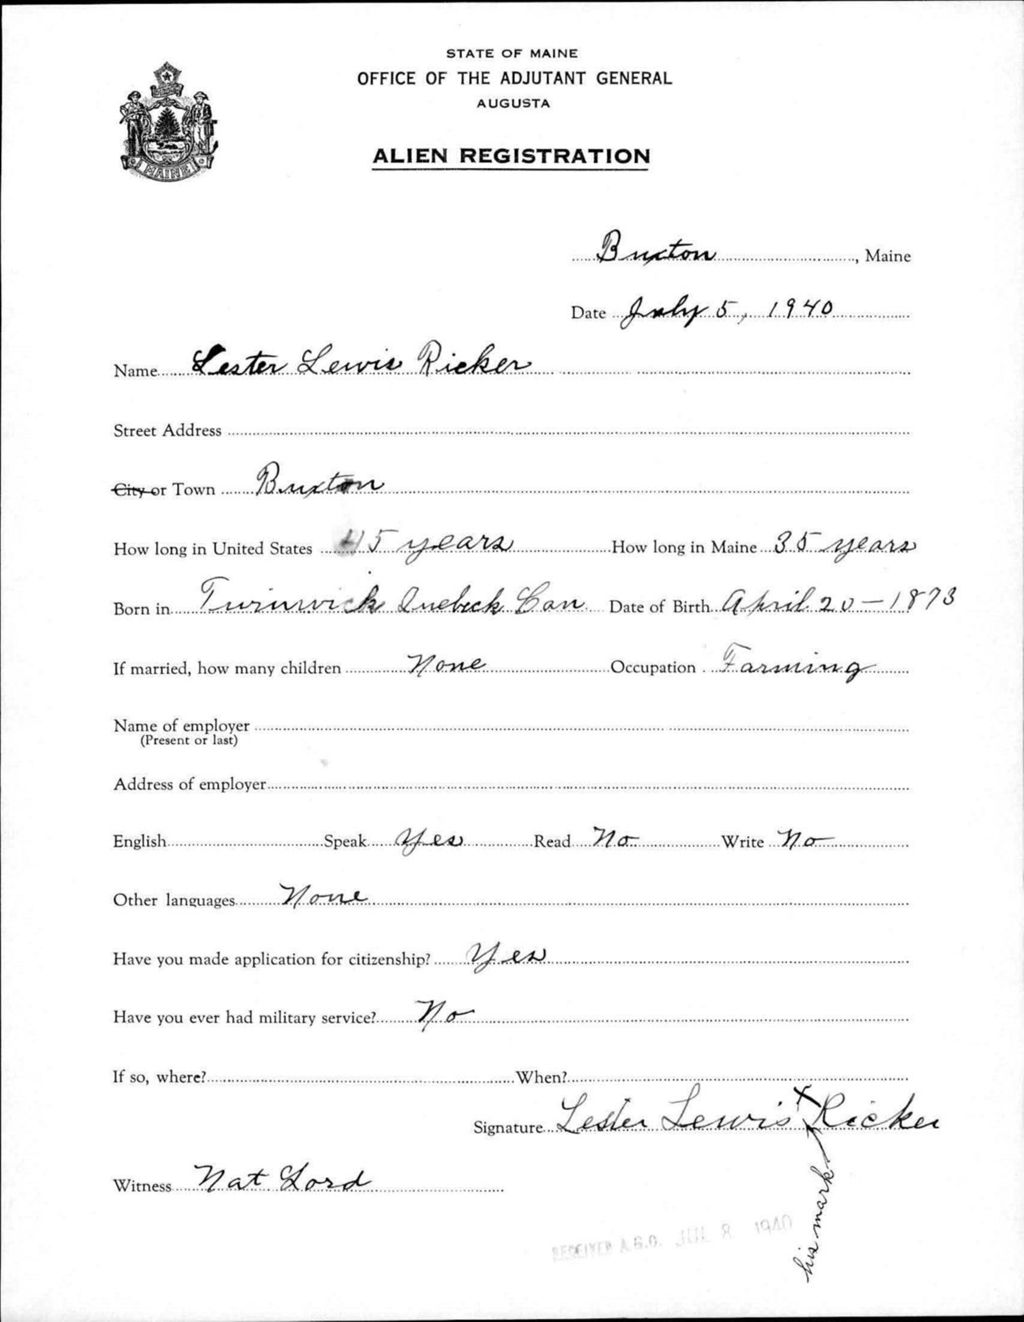 STATE OF MAINE
OFFICE OF THE ADJUTANT GENERAL
AUGUSTA
ALIEN REGISTRATION
MAINE
Buxton, Maine
Date July 5, 1940
Name Lester Lewis Ricker
Street Address
City or Town Buxton
How long in United States 45 years How long in Maine 35 years
Born in Quebeck Can Date of Birth April 20 - 1873
If married, how many children None Occupation Farming
Name of employer
(Present or last)
Address of employer
English Speak Yes Read No Write No
Other languages None
Have you made application for citizenship? Yes
Have you ever had military service? No
If so, where? When?
Signature Lester Lewis X Ricker
his mark
Witness Nat Lord
RECEIVED A.G.O. JUL 8 1940